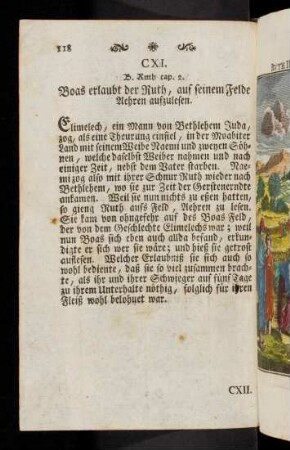 118
CXI.
B. Ruth cap. 2.
Boas erlaubt der Ruth, auf seinem Felde
Aehren aufzulesen.
Elimelech, ein Mann von Bethlehem Juda,
zog, als eine Theurung einfiel, in der Moabiter
Land mit seinem Weibe Naemi und zweyen Söh-
nen, welche daselbst Weiber nahmen und nach
einiger Zeit, nebst dem Vater starben. Nae-
mi zog also mit ihrer Schnur Ruth wieder nach
Bethlehem, wo sie zur Zeit der Gerstenerndte
ankamen. Weil sie nun nichts zu eßen hatten,
so gieng Ruth aufs Feld, Aehren zu lesen.
Sie kam von ohngefehr auf des Boas Feld,
der von dem Geschlechte Elimelechs war; weil
nun Boas sich eben auch allda befand, erkun-
digte er sich wer sie wäre; und hieß sie getrost
auflesen. Welcher Erlaubniß sie sich auch so
wohl bediente, daß sie so viel zusammen brach-
te, als ihr und ihrer Schwieger auf fünf Tage
zu ihrem Unterhalte nöthig, folglich für ihren
Fleiß wohl belohnet war.
CXII.